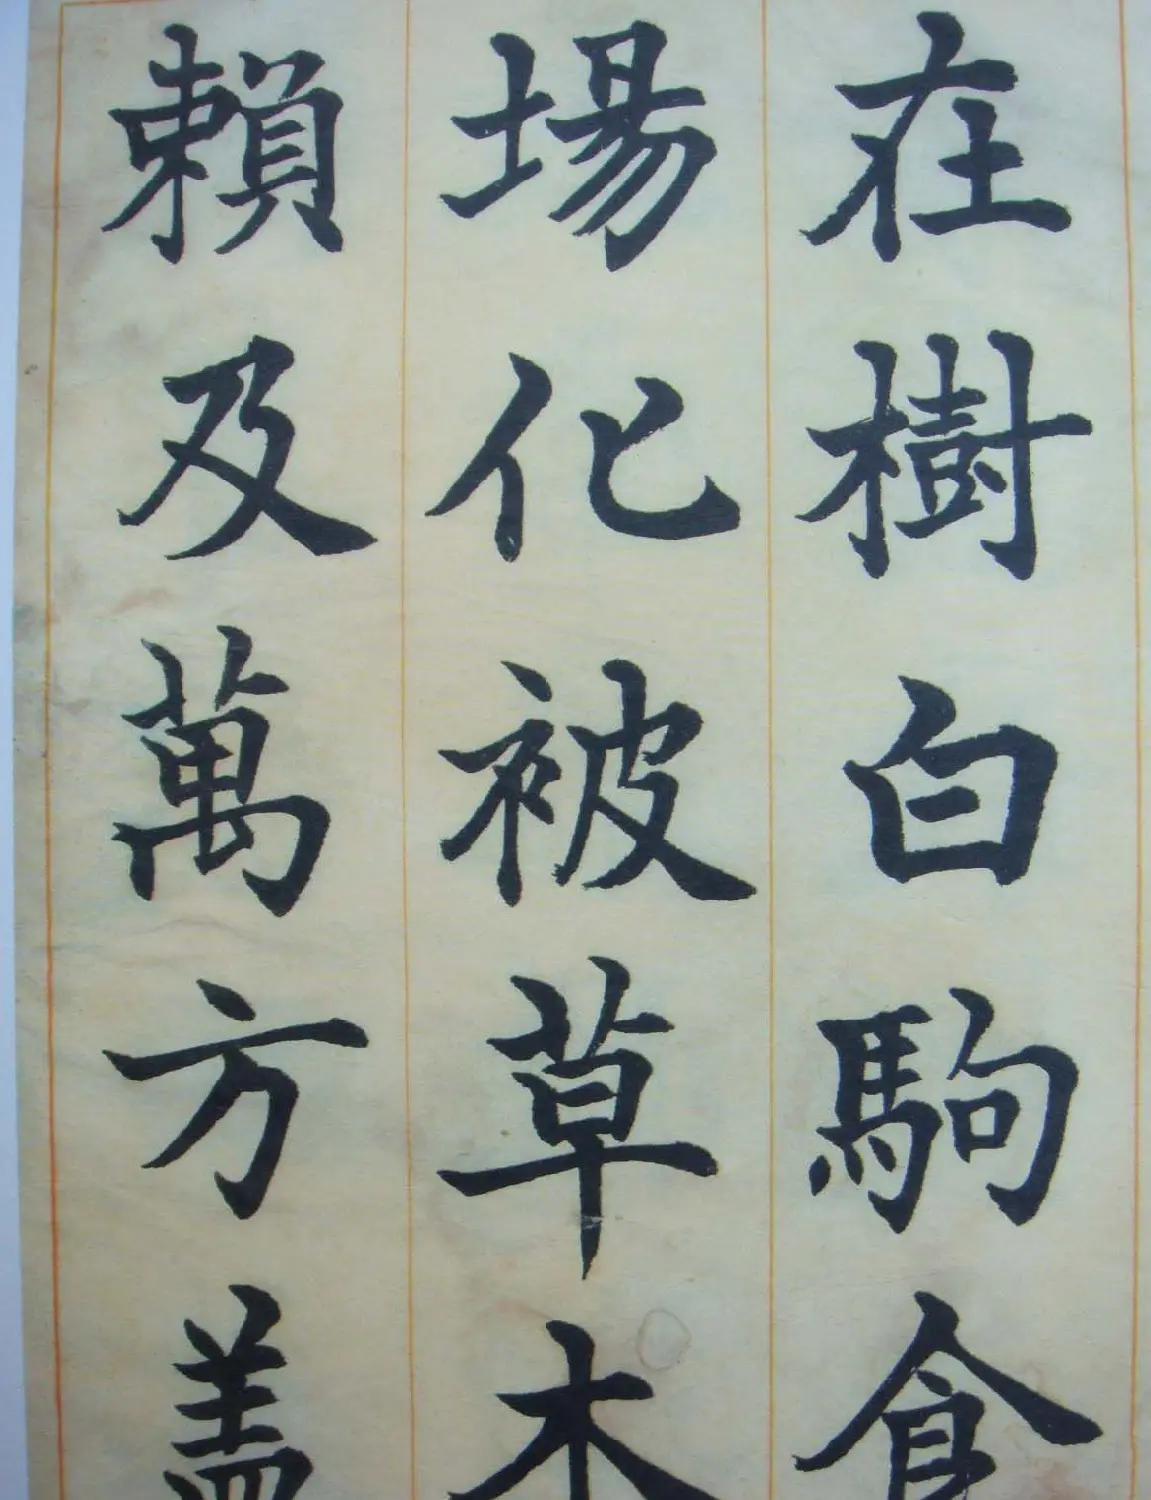 在樹白駒食
場化被草木
賴及萬方盖